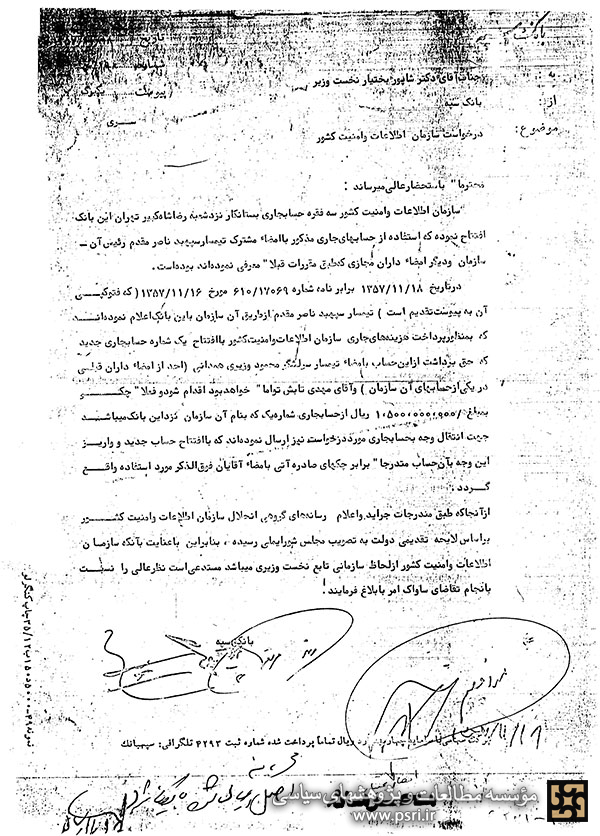 تاریخ
شماره
پیوست
سری
به : جناب آقای دکتر شاپور بختیار نخست وزیر
از : بانک سپه
موضوع : درخواست سازمان اطلاعات وامنیت کشور
محترما" باستحضار عالی میرساند :
سازمان اطلاعات وامنیت کشور سه فقره حسابجاری بستانکار نزد شعبه رضا شاه کبیر تهران این بانک
افتتاح نموده که استفاده از حسابهای جاری مذکور با امضاء مشترک تیمسار سپهبد ناصر مقدم رئیس آن ــ
سازمان ودیگر امضاء داران مجازی که طبق مقررات قبلا" معرفی نموده‌اند بوده‌است .
در تاریخ ۱۳۵۷/۱۱/۱۸ برابر نامه شماره ۶۱۰/۱۷۰۶۹ مورخ ۱۳۵۷/۱۱/۱۶ ( که فتوکپی
آن به پیوست تقدیم است ) تیمسار سپهبد ناصر مقدم از طریق آن سازمان باین بانک اعلام نموده‌اند
که بمنظور پرداخت هزینه‌های جاری سازمان اطلاعات وامنیت کشور با افتتاح یک شماره حسابجاری جدید
که حق برداشت از این حساب با امضاء تیمسار سرلشگر محمود وزیری همدانی ( احد از امضاء داران قبلی
در یکی از حسابهای آن سازمان ) و آقای مهدی تابش تواما" خواهد بود اقدام شود و قبلا" چک
بمبلغ ریال از حسابجاری شماره یک که بنام آن سازمان نزد این بانک میباشد
جهت انتقال وجه بحسابجاری مورد درخواست نیز ارسال نموده‌اند که با افتتاح حساب جدید و واریز
این وجه بآن حساب متدرجا" برابر چکهای صادره آتی با امضاء آقایان فوق الذکر مورد استفاده واقع
گردد .
از آنجا که طبق مندرجات جراید و اعلام رسانه‌های گروهی انحلال سازمان اطلاعات وامنیت کشور
براساس لایحه تقدیمی دولت به تصویب مجلس شورایملی رسیده ، بنابراین با عنایت بآنکه سازمان
اطلاعات وامنیت کشور از لحاظ سازمانی تابع نخست وزیری میباشد مستدعی است نظر عالی را نسبت
بانجام تقاضای ساواک امر بابلاغ فرمایند .
بانک سپه
ریال تماماً پرداخت شده شماره ثبت ۴۲۹۳ تلگرافی: سپهبانک
مؤسسه مطالعات و پژوهشهای سیاسی
www.psri.ir